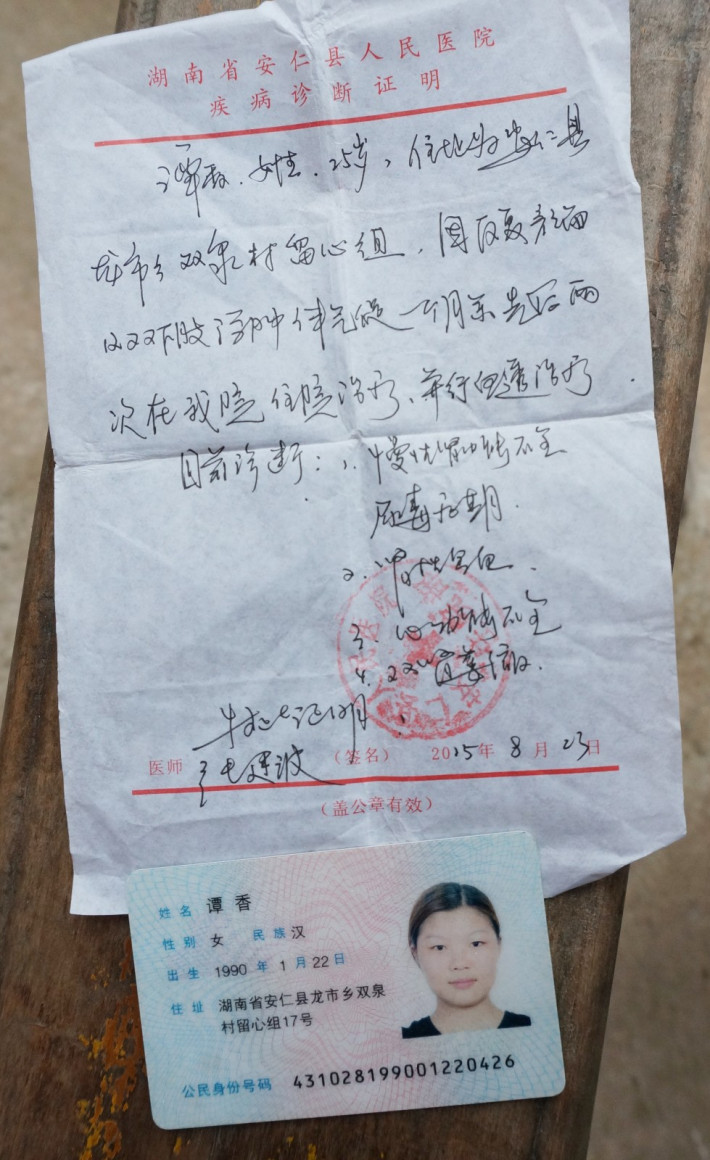 湖南省安仁县人民医院
疾病诊断证明
谭香、女性、25岁，住址为安仁县
龙市乡双泉村留心组，因反复颜面
及双下肢浮肿伴气促一月余先后两
次在我院住院治疗、并行血透治疗．
目前诊断：1.慢性肾功能不全
尿毒症期．
2.肾性贫血．
3.心功能不全
4.
特此证明
医师 （签名） 2015年8月23日
（盖公章有效）
姓名 谭香
性别 女 民族 汉
出生 1990年1月22日
住址 湖南省安仁县龙市乡双泉
村留心组17号
公民身份号码 431028199001220426